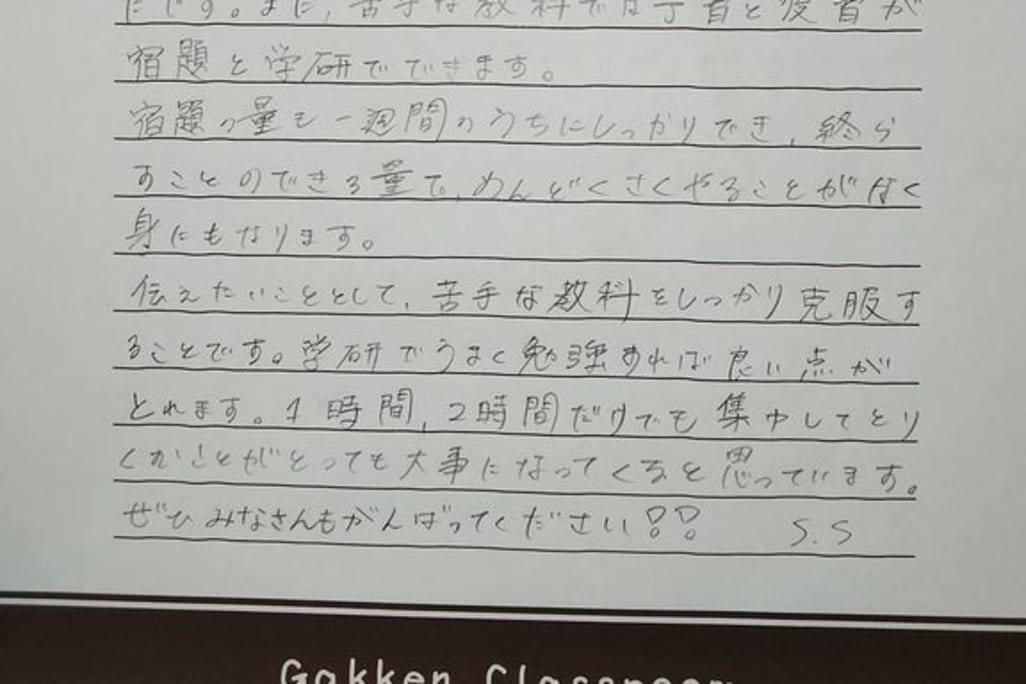 たです。また,苦手な教科では予習と復習が
宿題と学研でできます。
宿題の量も一週間のうちにしっかりでき,終ら
すことのできる量で,めんどくさくやることがなく
身にもなります。
伝えたいこととして,苦手な教科をしっかり克服す
ることです。学研でうまく勉強すれば良い点が
とれます。1時間,2時間だけでも集中してとり
くむことがとっても大事になってくると思っています。
ぜひみなさんもがんばってください!! S.S
Gakken Classroom